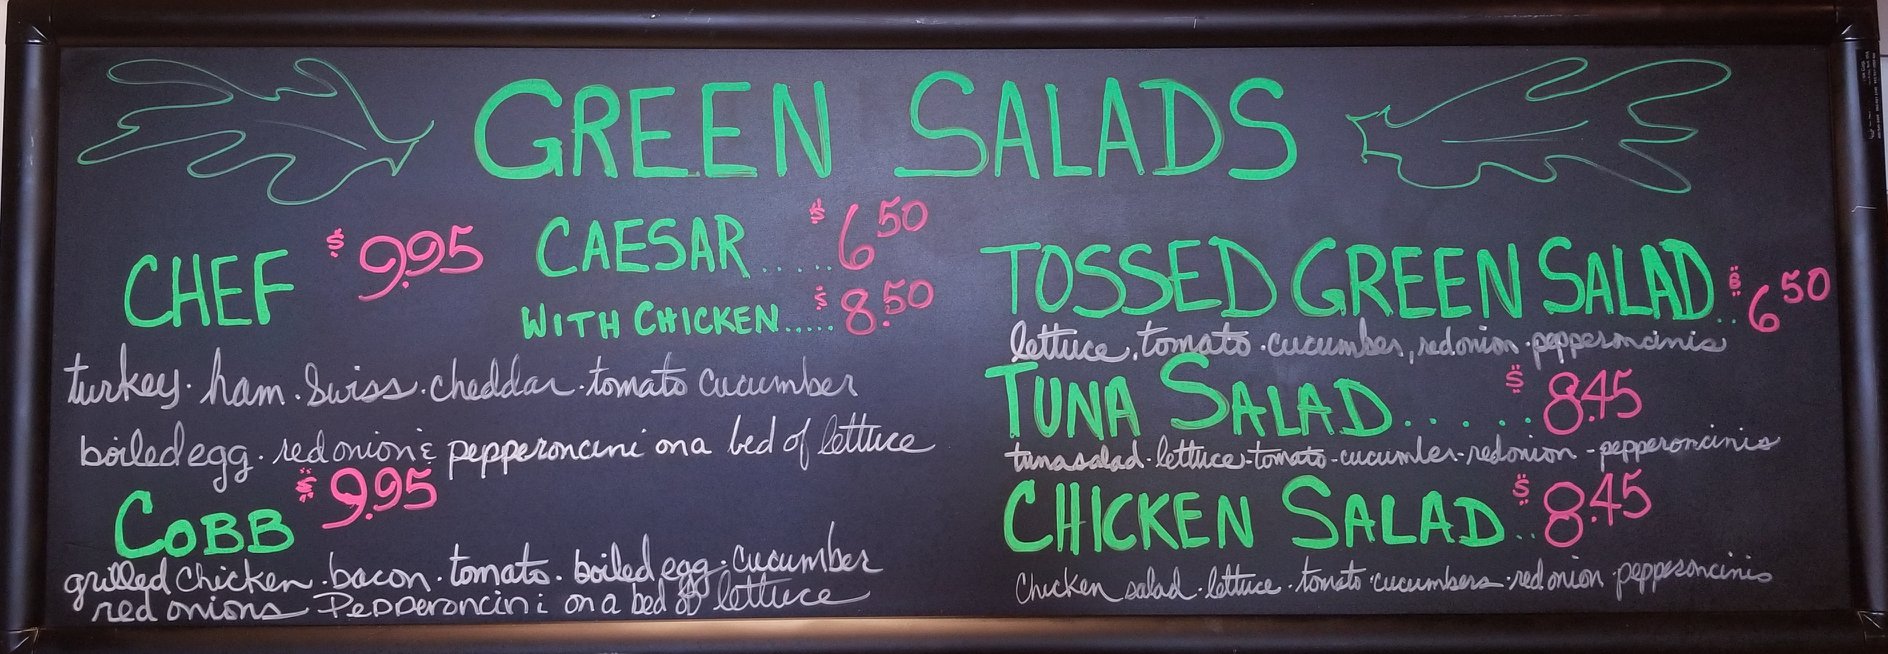 GREEN SALADS
CHEF $9.95
turkey · ham · Swiss · cheddar · tomato cucumber
boiled egg · red onion & pepperoncini on a bed of lettuce
COBB $9.95
grilled chicken · bacon · tomato · boiled egg · cucumber
red onions Pepperoncini on a bed of lettuce
CAESAR ..... $6.50
WITH CHICKEN ..... $8.50
TOSSED GREEN SALAD .. $6.50
lettuce · tomato · cucumber, red onion · pepperoncinis
TUNA SALAD ...... $8.45
tuna salad · lettuce · tomato - cucumber - red onion - pepperoncinis
CHICKEN SALAD .. $8.45
Chicken salad · lettuce · tomato · cucumbers · red onion · pepperoncinis